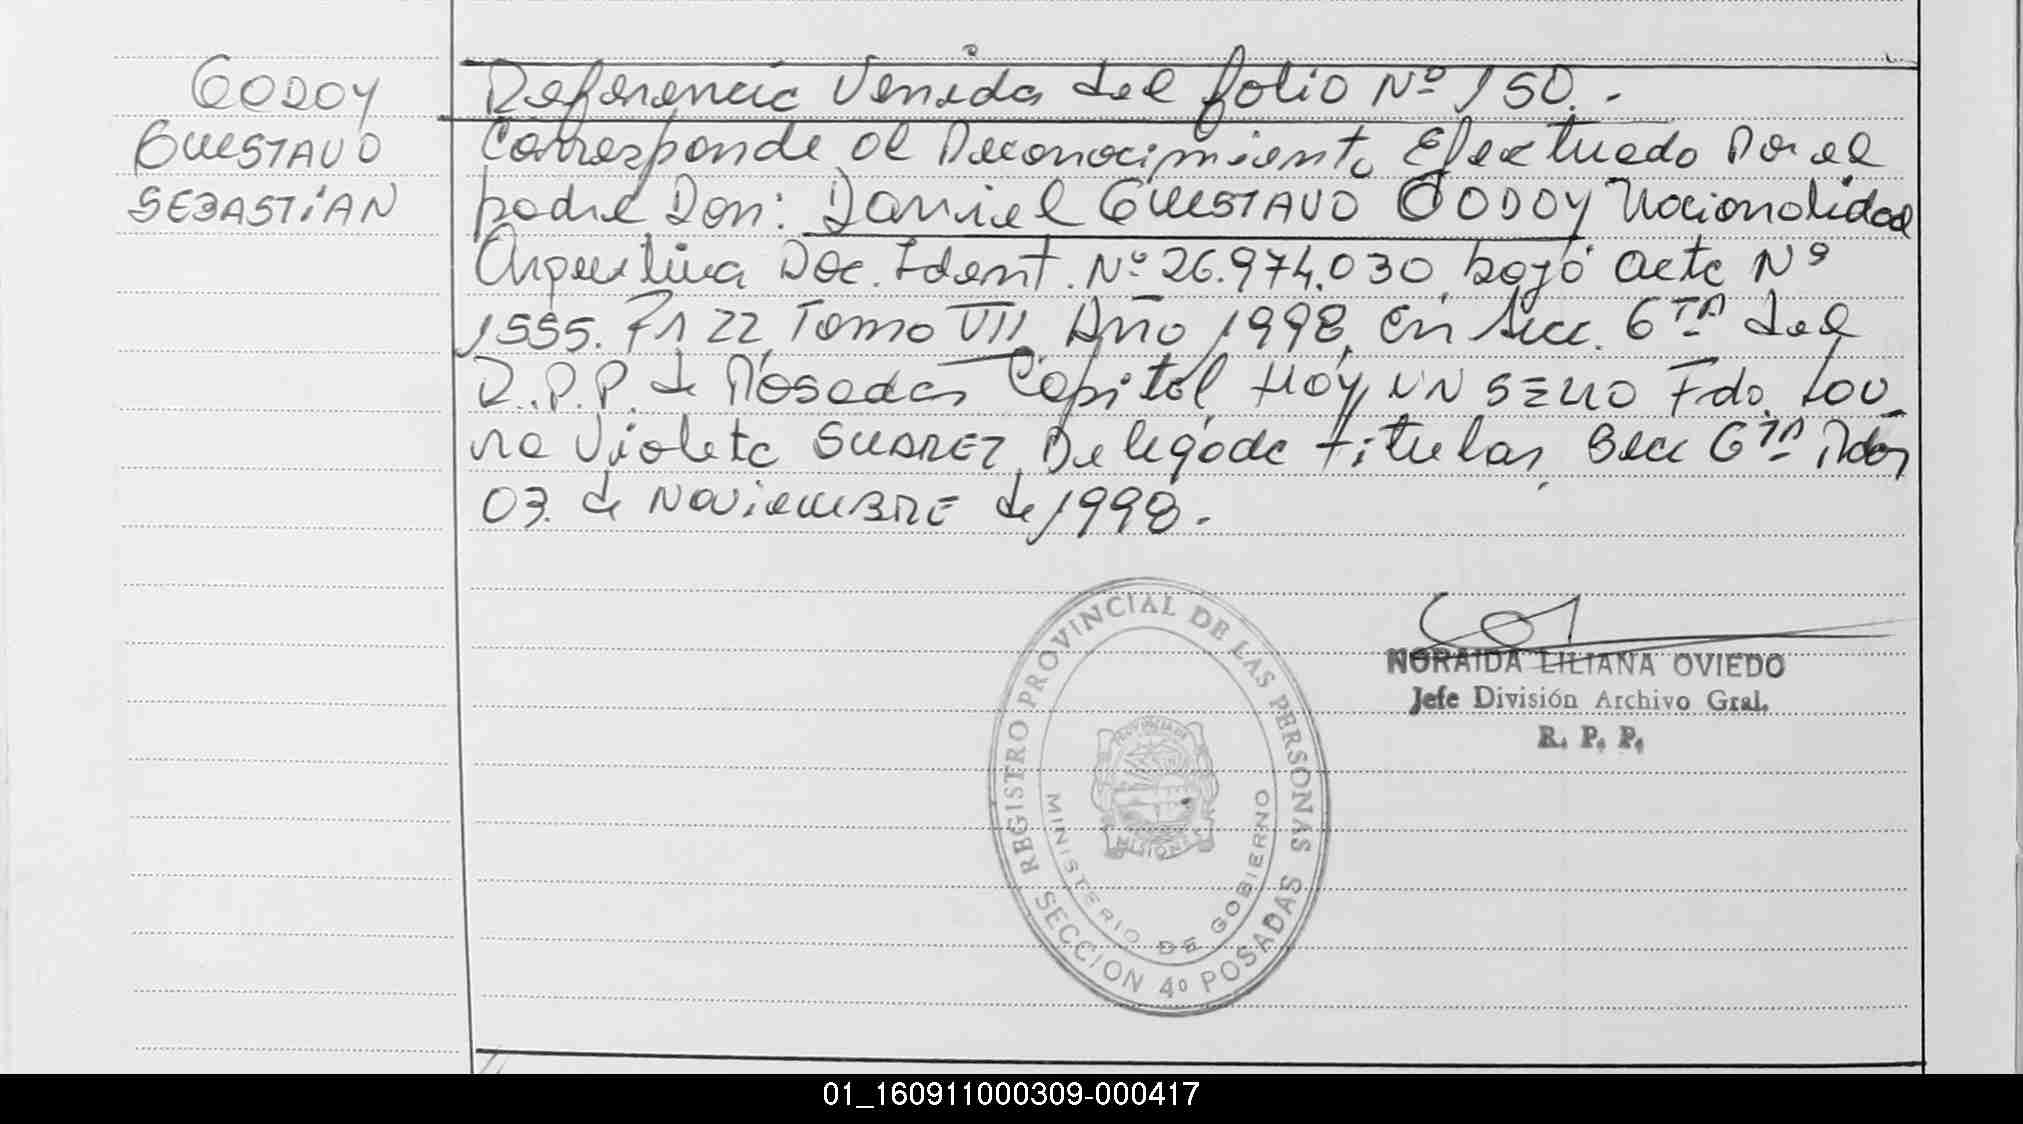 GODOY
GUSTAVO
SEBASTIAN
Referencia Venida del folio Nº 150.-
Corresponde al Reconocimiento Efectuado Por el
padre Don: Daniel GUSTAVO GODOY Nacionalidad
Argentina Doc. Ident. Nº 26.974.030, bajo acta Nº
1555. Fº 22, Tomo VII, Año 1998, en Secc. 6TA del
R.P.P. de Posadas Capital Hoy UN SELLO Fdo. Lau_
ra Violeta SUAREZ Delegada titular, Secc 6TA Pdas
03. de NOVIEMBRE de 1998.-
REGISTRO PROVINCIAL DE LAS PERSONAS
MINISTERIO DE GOBIERNO
PROVINCIA DE
MISIONES
SECCION 4º POSADAS
NORAIDA LILIANA OVIEDO
Jefe División Archivo Gral.
R. P. P.
01_160911000309-000417